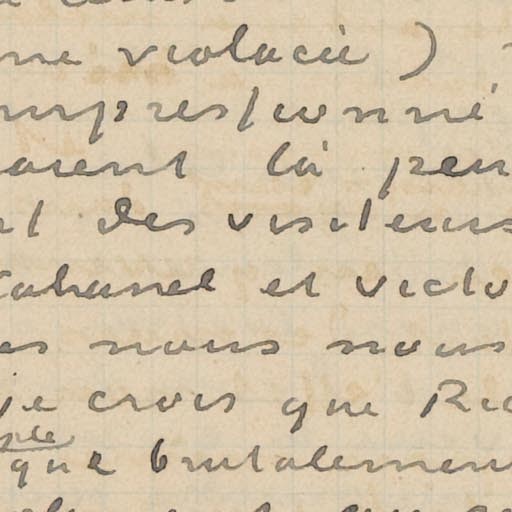 me violacée)
impressionné
aient là pen
nt des visiteurs
Cabanel et victo
es nous nous
je crois que Ric
que brutalemen